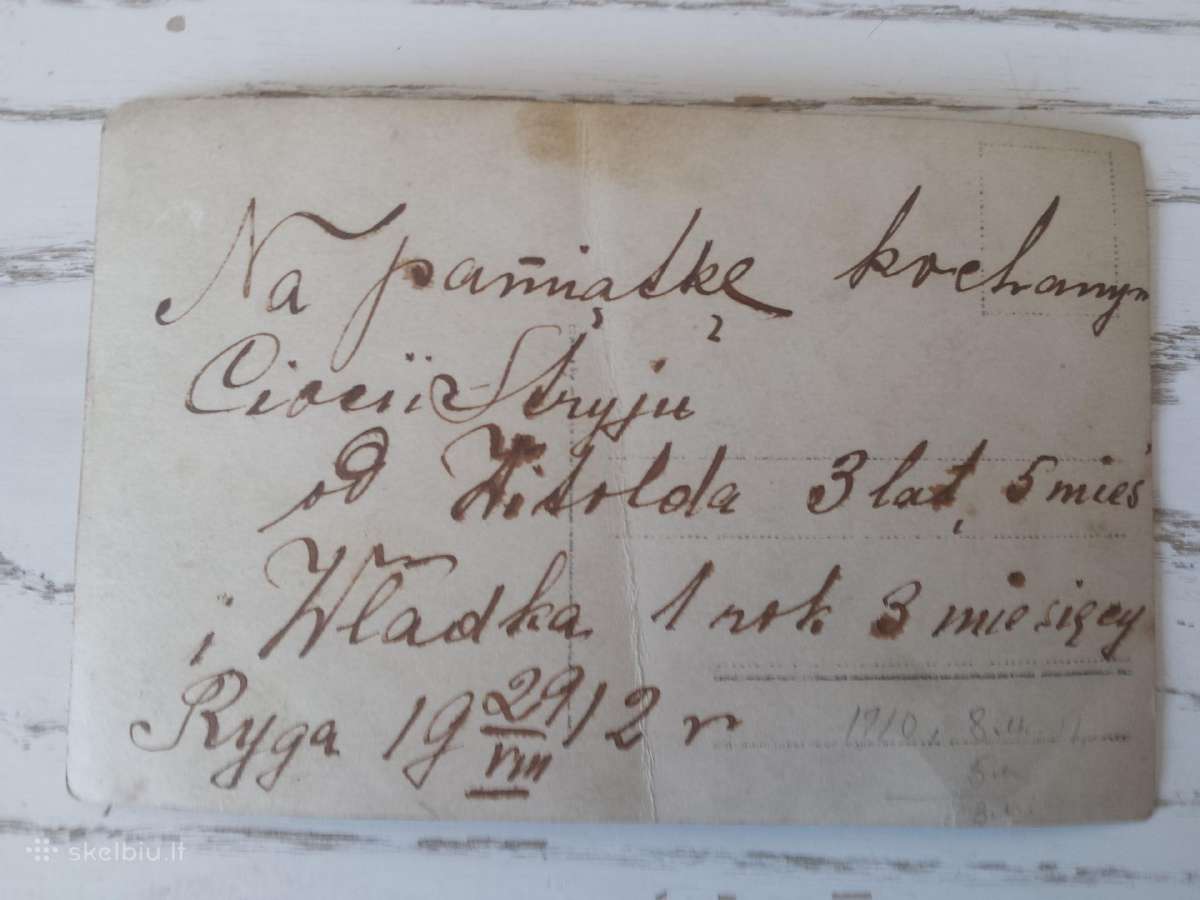 Na pamiątkę kochanym
Cioci i Stryju
od Witolda 3 lat, 5 mieś
i Władka 1 rok 3 miesięcy
Ryga 19 29/VIII 12 r
1910, 8
skelbiu.lt